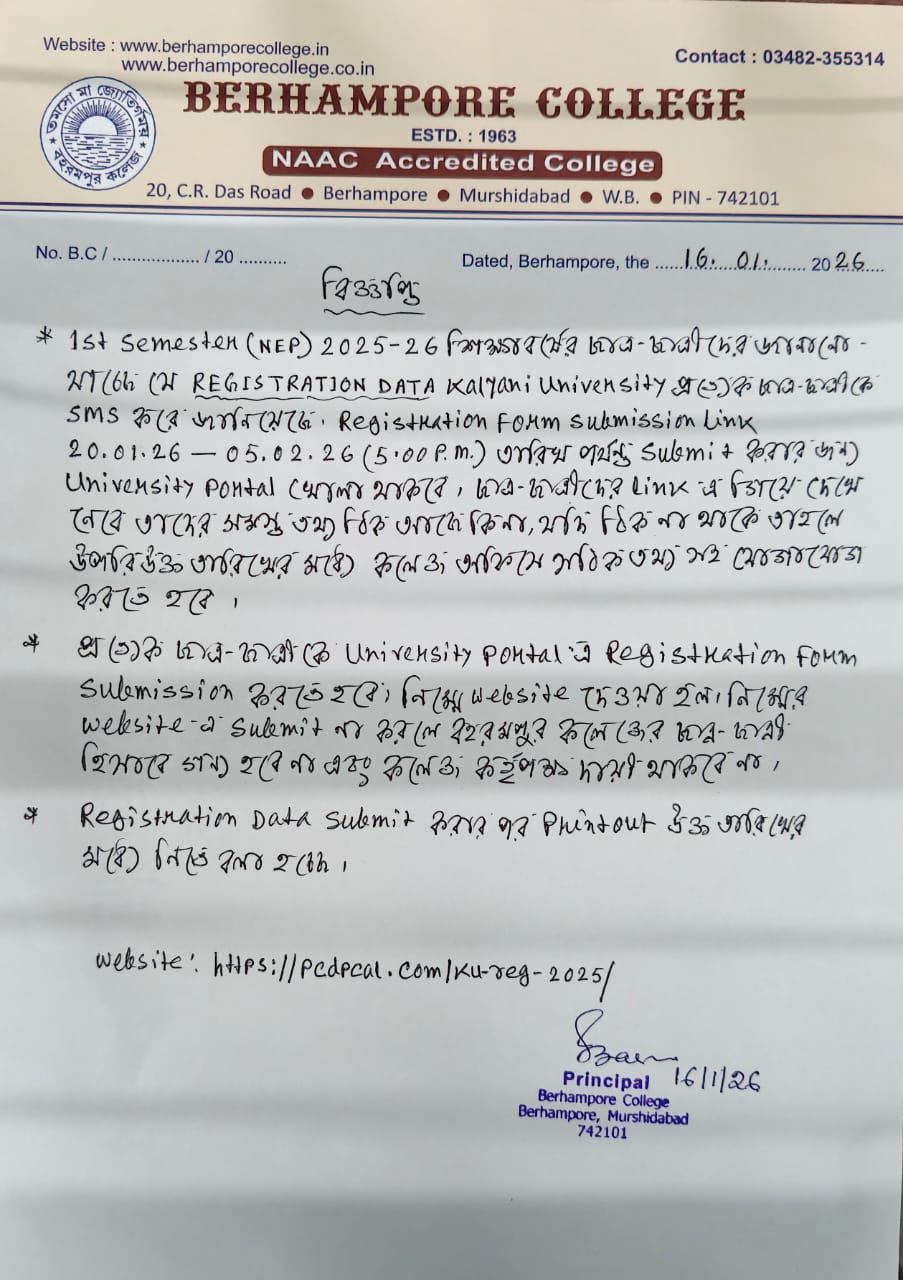 Website : www.berhamporecollege.in
www.berhamporecollege.co.in
Contact : 03482-355314
তমসো মা জ্যোতির্গময়
বহরমপুর কলেজ
BERHAMPORE COLLEGE
ESTD. : 1963
NAAC Accredited College
20, C.R. Das Road ● Berhampore ● Murshidabad ● W.B. ● PIN - 742101
No. B.C / ................. / 20 ..........
Dated, Berhampore, the ......16. 01. ........ 2026....
বিজ্ঞপ্তি
* 1st Semester (NEP) 2025-26 শিক্ষাবর্ষের ছাত্র-ছাত্রীদের জানানো -
যাচ্ছে যে REGISTRATION DATA Kalyani University প্রত্যেক ছাত্র-ছাত্রীকে
SMS করে জানিয়েছে। Registration Form Submission Link
20.01.26 — 05.02.26 (5.00 P.m.) তারিখ পর্যন্ত Submit করার জন্য
University Portal খোলা থাকবে, ছাত্র-ছাত্রীদের Link এ গিয়ে দেখে
নেবে তাদের সমস্ত তথ্য ঠিক আছে কিনা, যদি ঠিক না থাকে তাহলে
উপরিউক্ত তারিখের মধ্যে কলেজ অফিসে সঠিক তথ্য সহ যোগাযোগ
করতে হবে ।
* প্রত্যেক ছাত্র-ছাত্রীকে University Portal এ Registration Form
Submission করতে হবে, নিম্নে website দেওয়া হল। নিম্নের
website-এ Submit না করলে বহরমপুর কলেজের ছাত্র-ছাত্রী
হিসাবে গন্য হবে না এবং কলেজ কর্তৃপক্ষ দায়ী থাকবে না ।
* Registration Data Submit করার পর Printout উক্ত তারিখের
মধ্যে নিতে বলা হচ্ছে ।
Website : https://pcdpcal.com/ku-reg-2025/
Principal 16/1/26
Berhampore College
Berhampore, Murshidabad
742101